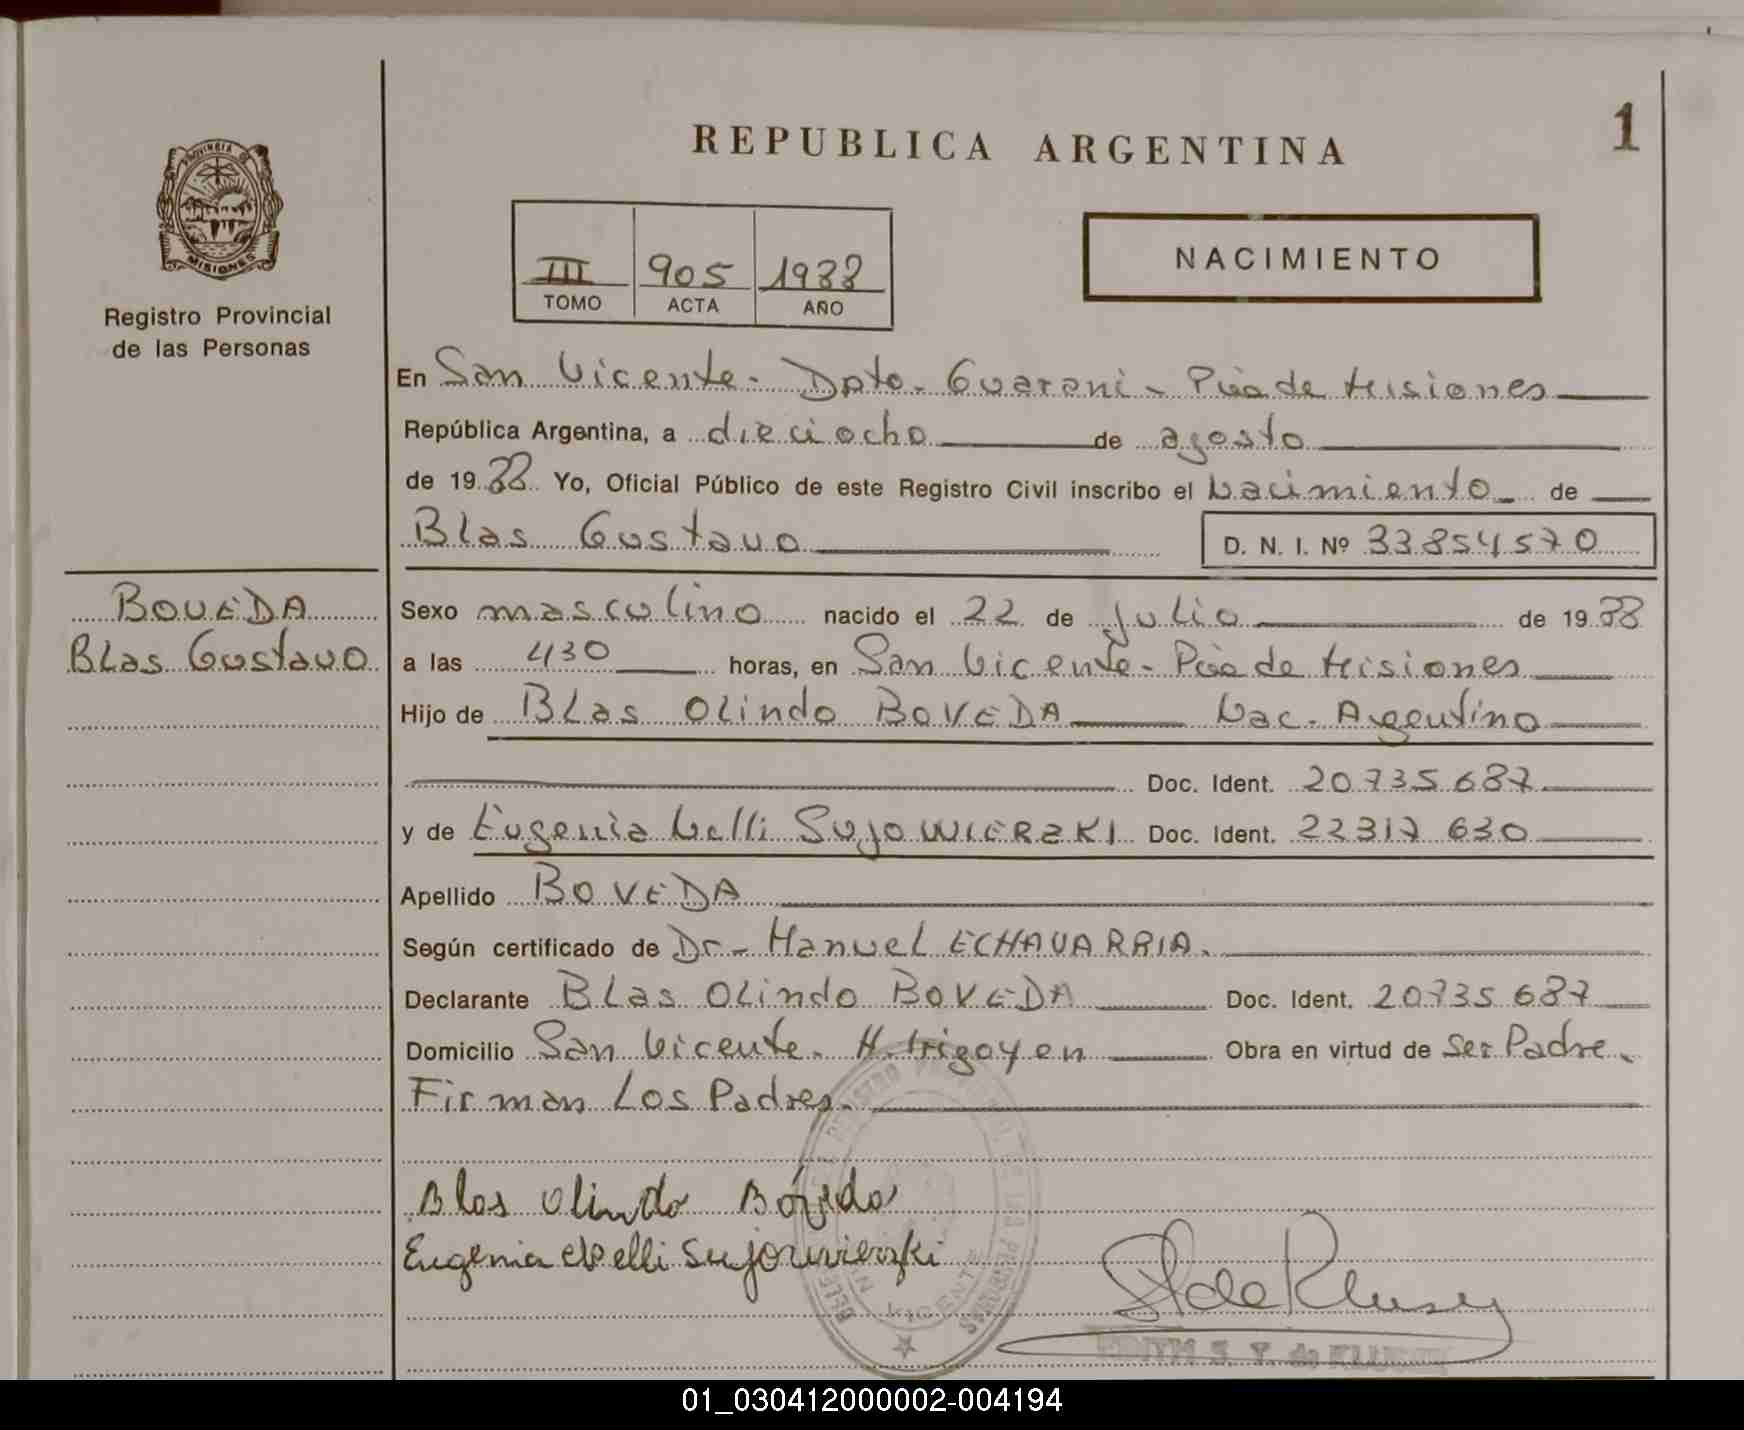 1
REPUBLICA ARGENTINA
PROVINCIA DE
MISIONES
Registro Provincial
de las Personas
III 905 1988
TOMO ACTA AÑO
NACIMIENTO
En San Vicente - Dpto. Guaraní - Pcia de Misiones
República Argentina, a dieciocho de agosto
de 1988 Yo, Oficial Público de este Registro Civil inscribo el Nacimiento de
Blas Gustavo D. N. I. Nº 33854570
BOVEDA
Blas Gustavo
Sexo masculino nacido el 22 de Julio de 1988
a las 430 horas, en San Vicente - Pcia de Misiones
Hijo de Blas Olindo BOVEDA Nac. Argentino
Doc. Ident. 20735687
y de Eugenia Nelli SUJOWIERZKI Doc. Ident. 22317630
Apellido BOVEDA
Según certificado de Dr - Manuel ECHAVARRIA.
Declarante Blas Olindo BOVEDA Doc. Ident. 20735687
Domicilio San Vicente. H. Irigoyen Obra en virtud de Ser Padre.
Firman Los Padres.
Blas Olindo Bóveda
Eugenia Nelli Sujowierzki
VICENTE
01_030412000002-004194